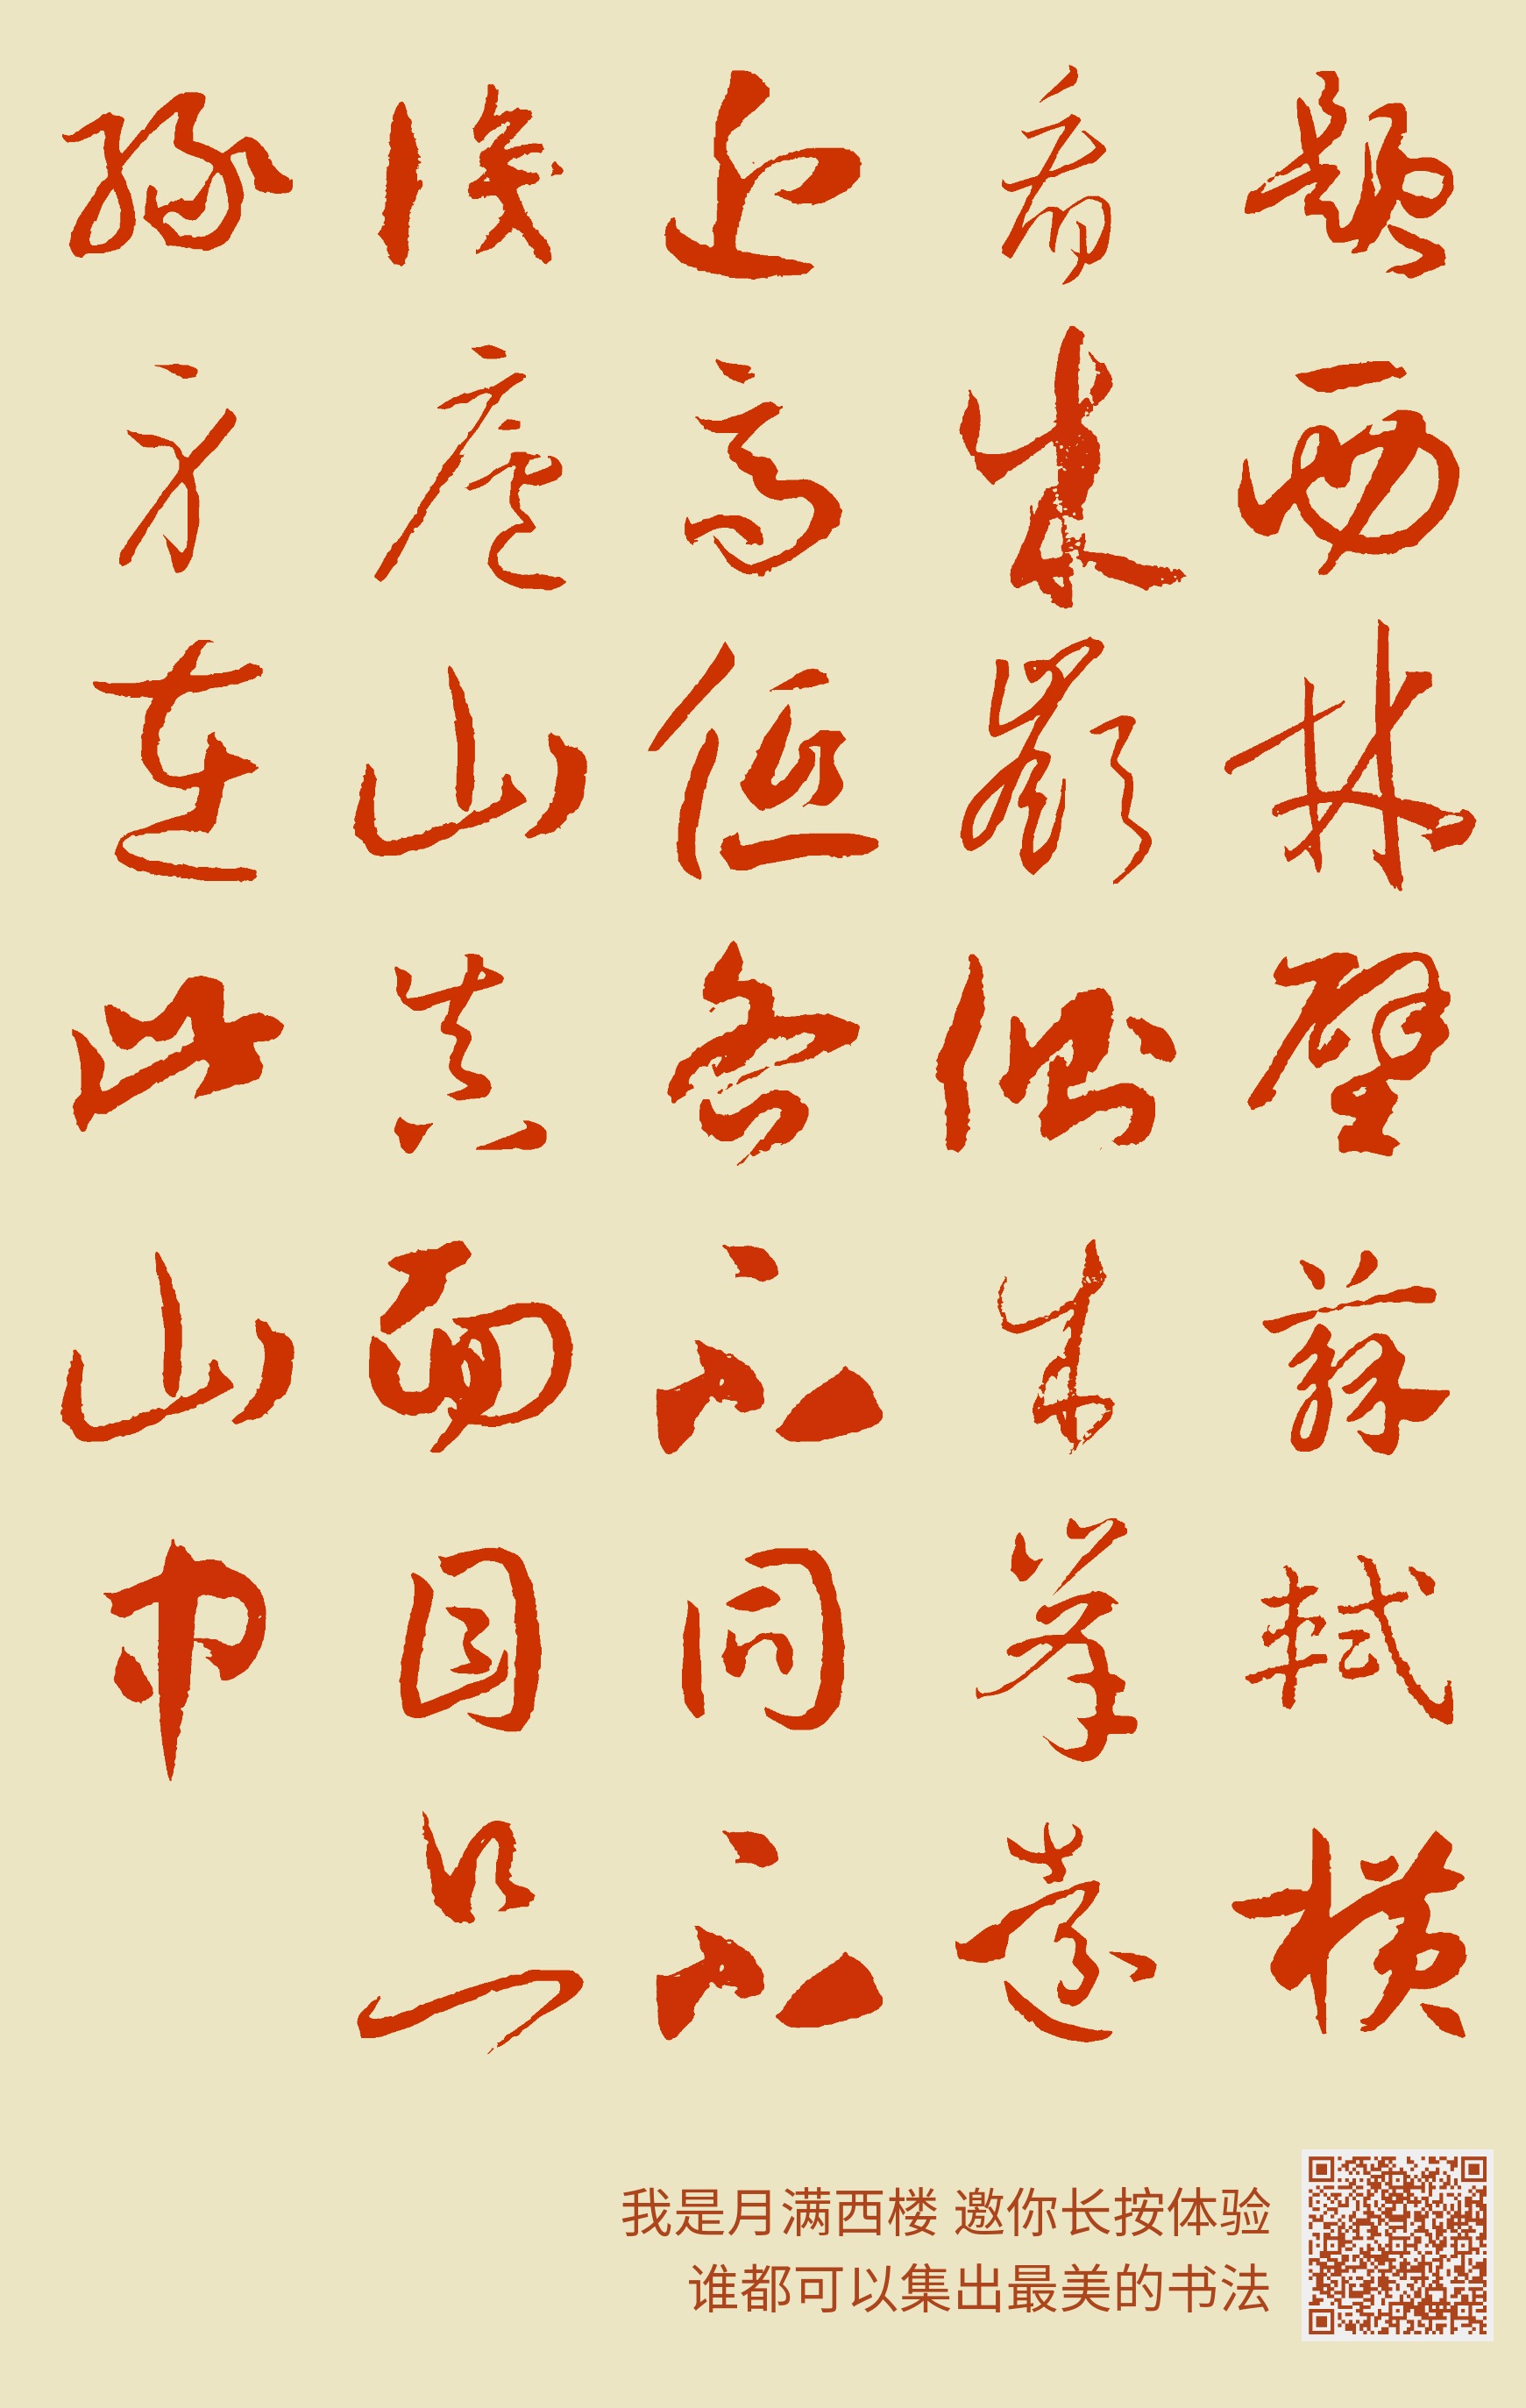 題西林壁蘇軾橫
看成嶺側成峯遠
近高低各不同不
識廬山真面目只
緣身在此山中
我是月满西楼 邀你长按体验
谁都可以集出最美的书法